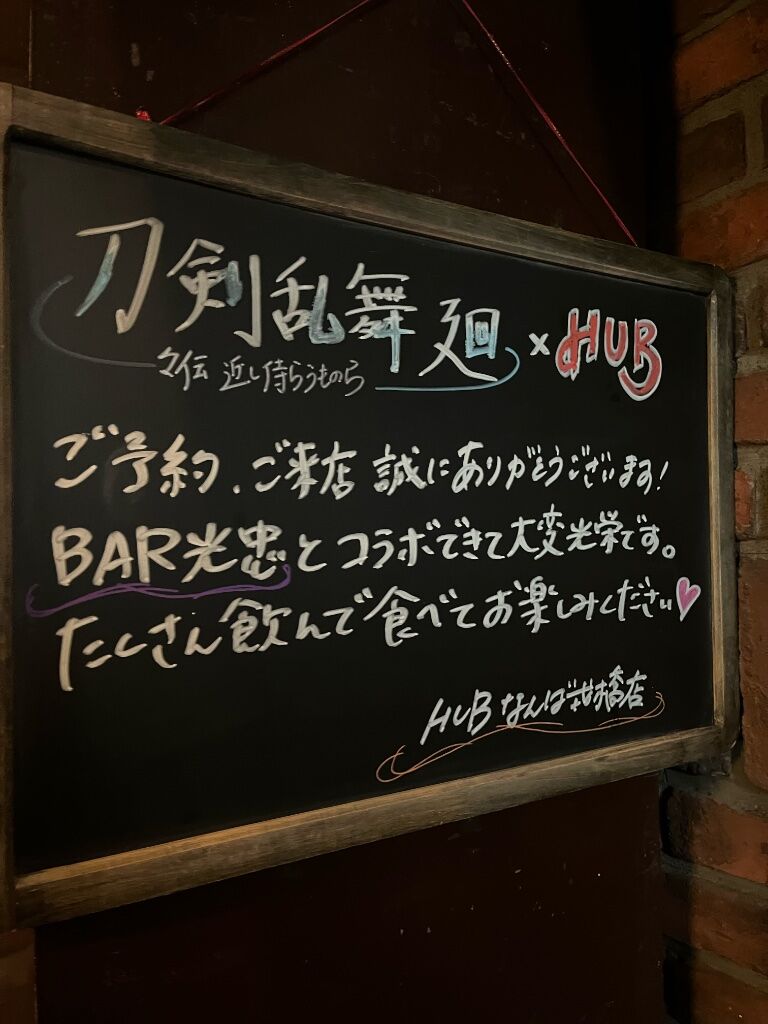 刀剣乱舞 廻 × HUB
々伝 近し侍らうものら
ご予約、ご来店 誠にありがとうございます!
BAR光忠とコラボできて大変光栄です。
たくさん飲んで食べてお楽しみください♡
HUB なんば戎橋店